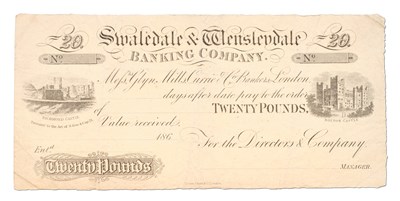 20. Swaledale & Wensleydale 20.
BANKING COMPANY.
No No
Messrs Glyn, Mills, Currie & Co. Bankers London
days after date pay to the order
of TWENTY POUNDS,
Value received 186
Entd For the Directors & Company.
Twenty Pounds
MANAGER.